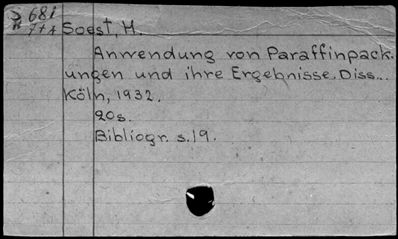 681
Soest, H.
Anwendung von Paraffinpack-
ungen und ihre Ergebnisse. Diss...
Köln, 1932.
20s.
Bibliogr. s.19.